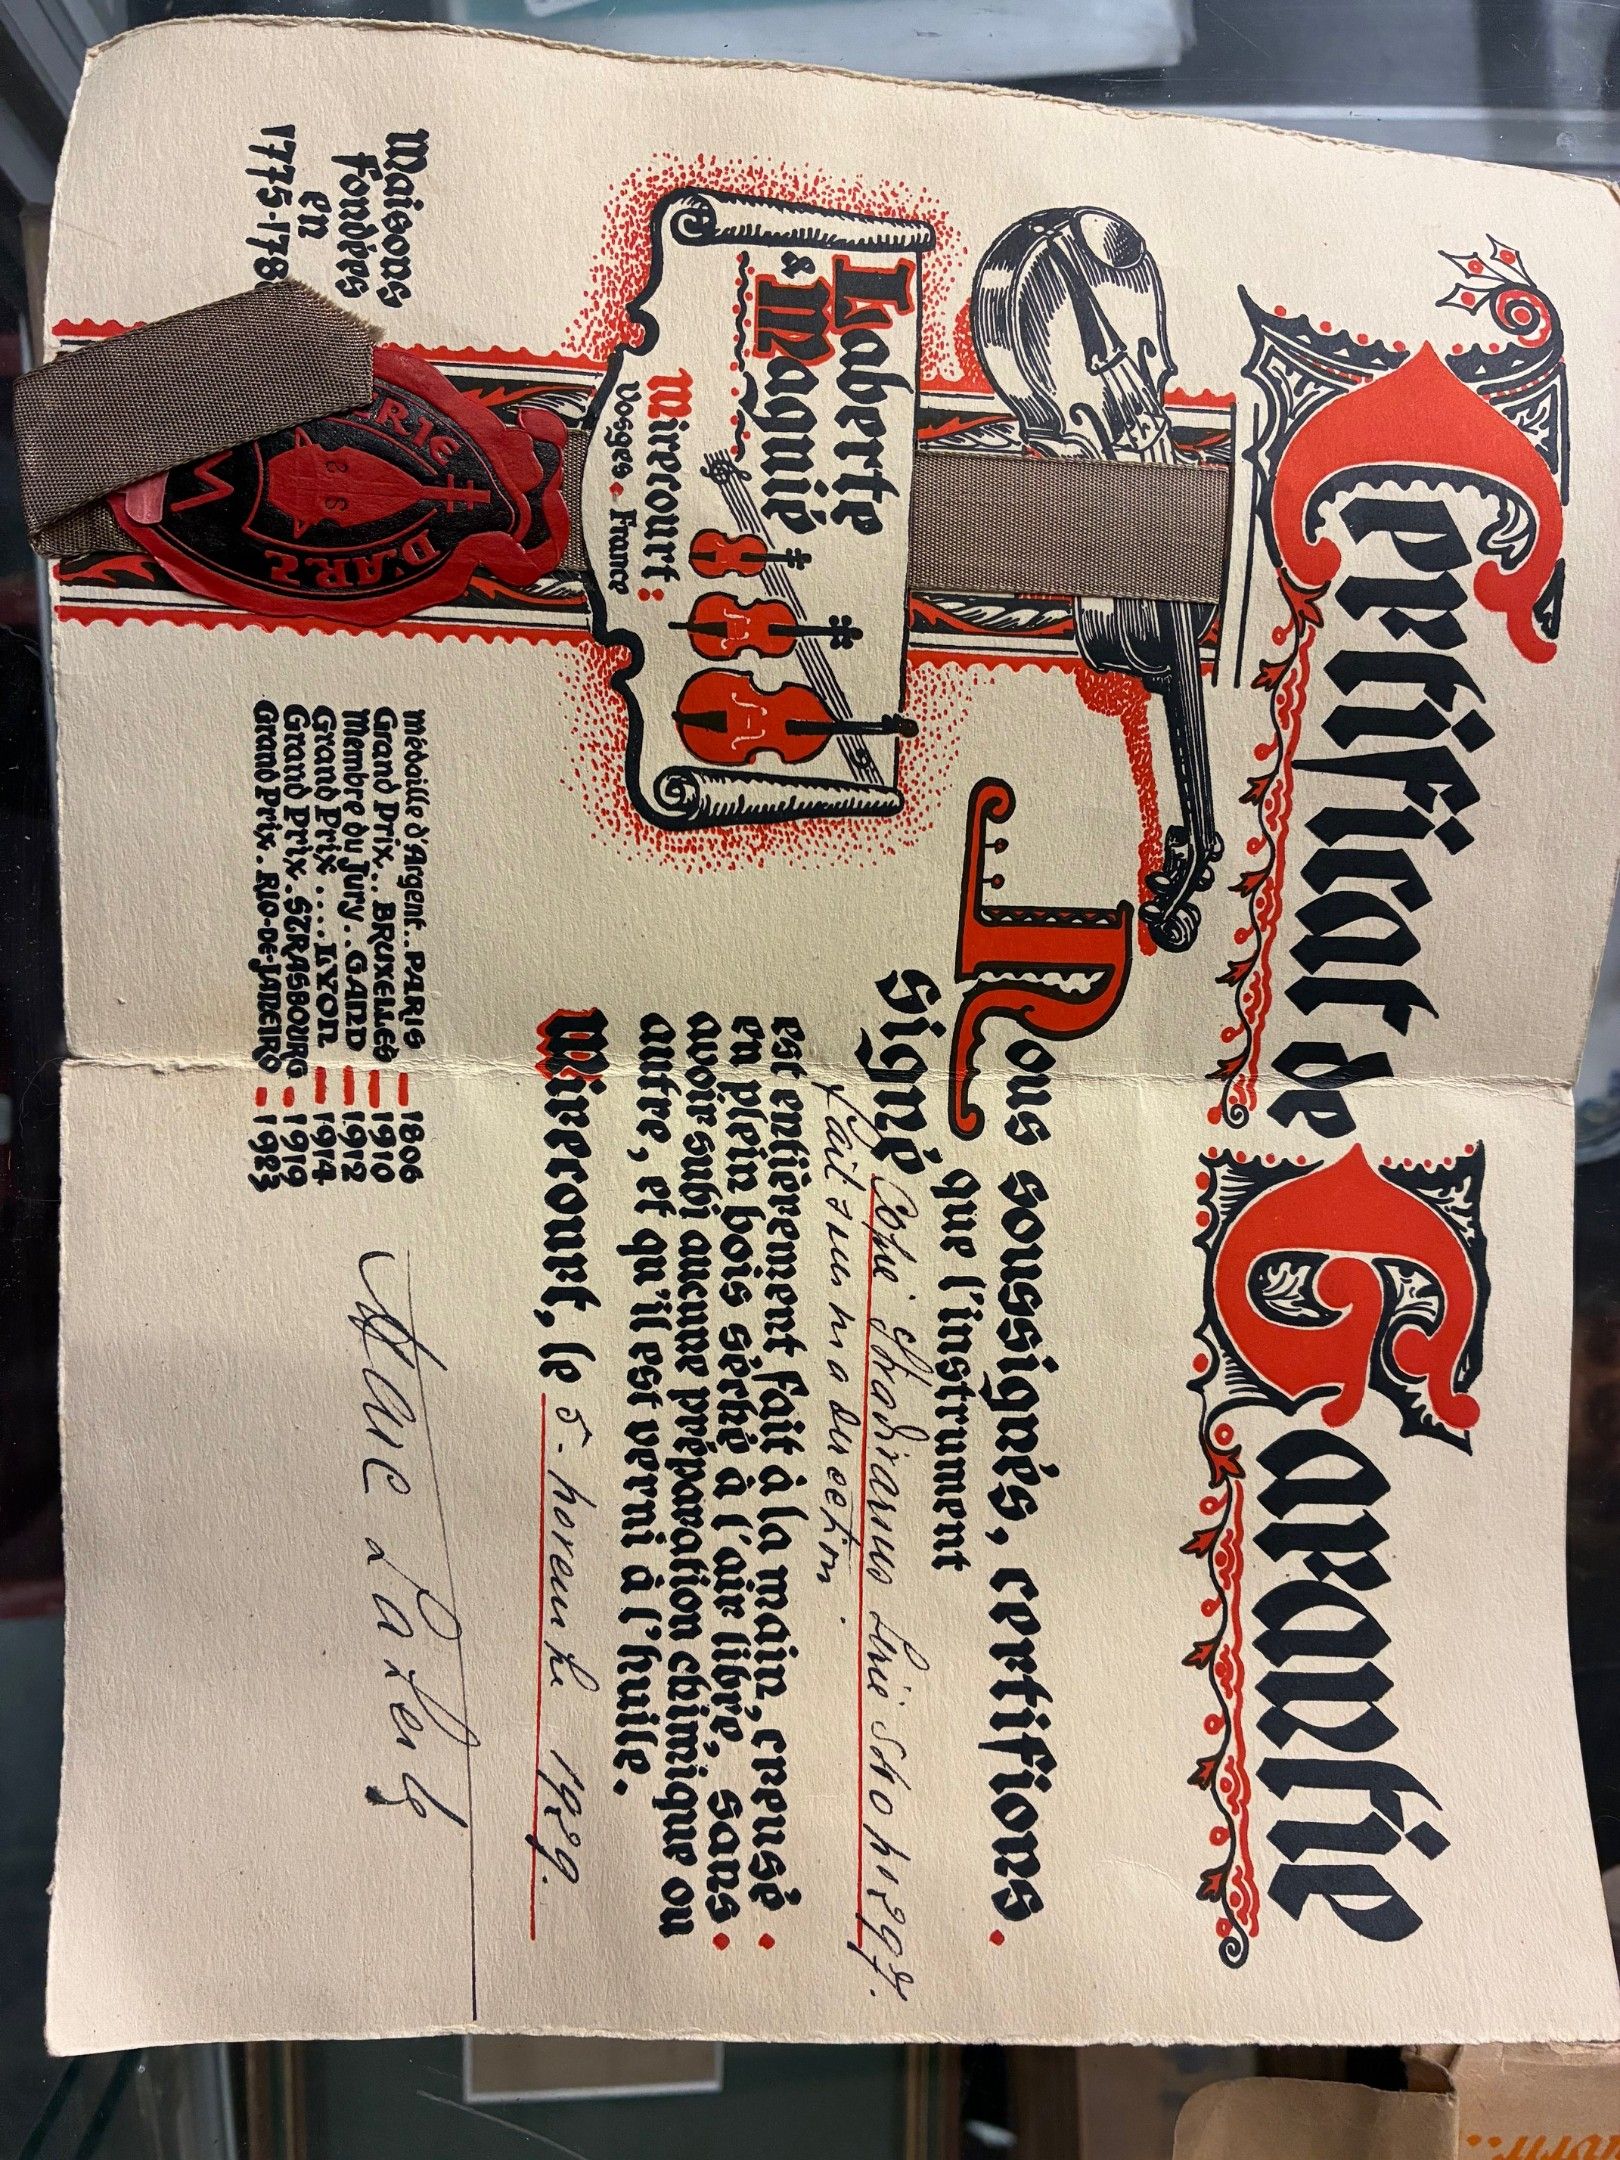 Certificat de Garantie
Nous soussignés, certifions.
que l'instrument
Signé Copie Stradivarius Série 580 no 1297.
fait sur ma direction.
est entièrement fait à la main, creusé
en plein bois séché à l'air libre, sans
avoir subi aucune préparation chimique ou
autre, et qu'il est verni à l'huile.
Mirecourt, le 5 - novembre 1929.
Laberte
& Magnié
Mirecourt:
Vosges - France
Maisons
Fondées
en
1775-178
D'ARC
médaille d'Argent..PARIS = 1806
Grand Prix... BRUXELLES = 1910
Membre du Jury..GAND = 1912
Grand Prix.....LYON = 1914
Grand Prix.STRASBOURG = 1919
Grand Prix. RIO-DE-JANEIRO = 1923